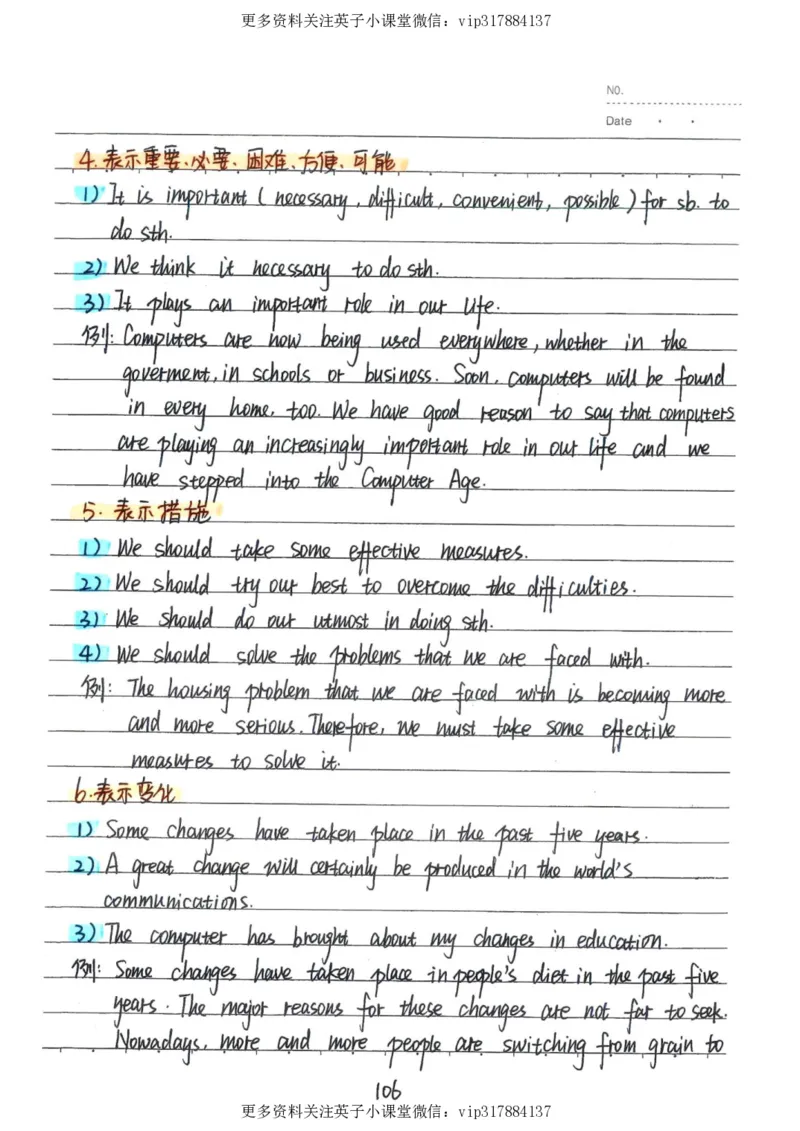 更多资料关注英子小课堂微信：vip317884137
NO.
Date
4.表示重要、必要、困难、方便、可能
1) It is important ( necessary, difficult, convenient, possible ) for sb. to
do sth.
2) We think it necessary to do sth.
3) It plays an important role in our life.
例: Computers are now being used everywhere, whether in the
goverment, in schools or business. Soon, computers will be found
in every home, too. We have good reason to say that computers
are playing an increasingly important role in our life and we
have stepped into the Computer Age.
5. 表示措施
1) We should take some effective measures.
2) We should try our best to overcome the difficulties.
3) We should do our utmost in doing sth.
4) We should solve the problems that we are faced with.
例: The housing problem that we are faced with is becoming more
and more serious. Therefore, we must take some effective
measures to solve it.
6.表示变化
1) Some changes have taken place in the past five years.
2) A great change will certainly be produced in the world's
communications.
3) The computer has brought about my changes in education.
例: Some changes have taken place in people's diet in the past five
years. The major reasons for these changes are not far to seek.
Nowadays, more and more people are switching from grain to
106
更多资料关注英子小课堂微信：vip317884137